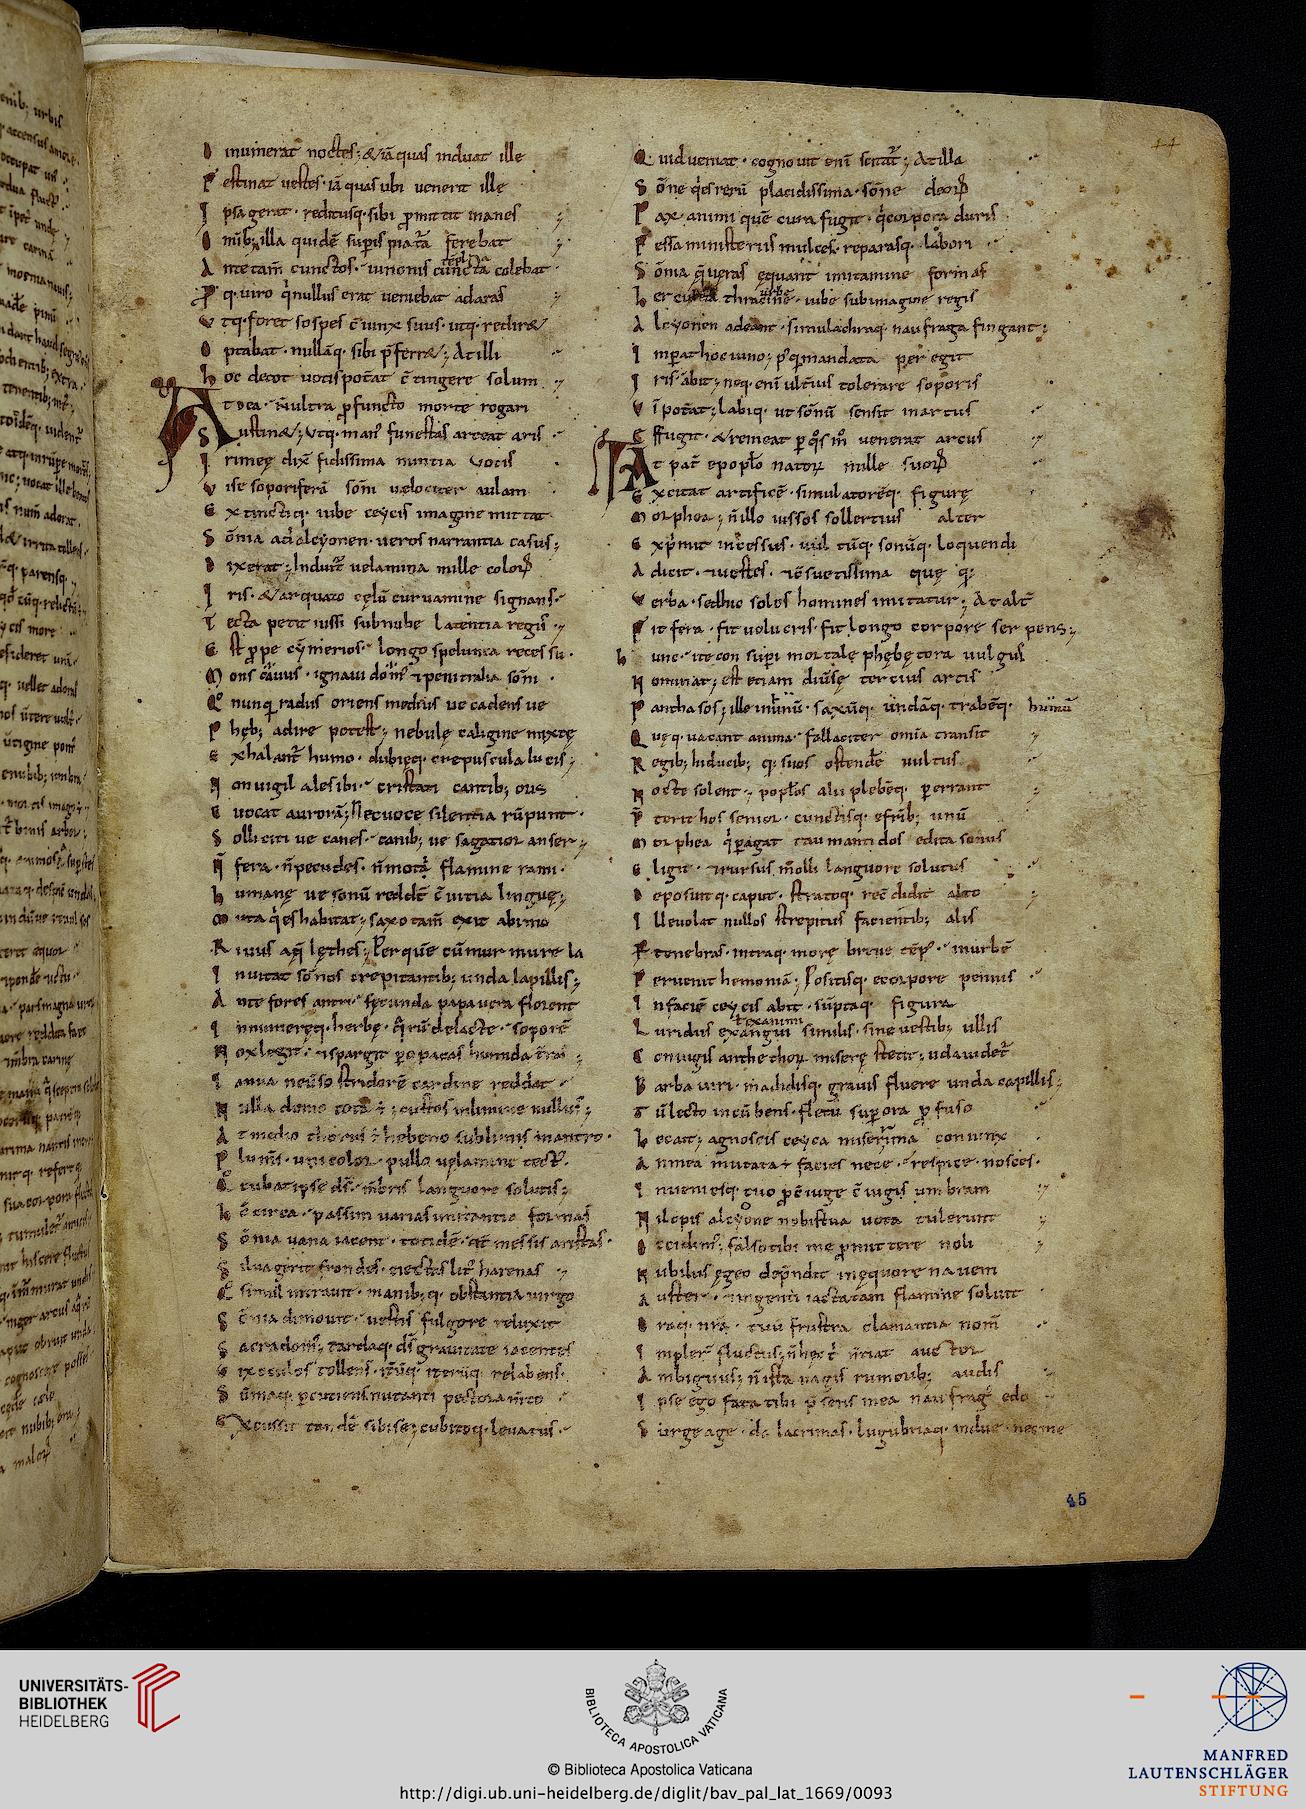 D inumerat noctes; & iā quas induat ille
F estinat uestes · iā quas ubi uenerit ille
I psa gerat · reditusq· sibi promittit inanes
O mnib; illa quidē supis pia tura ferebat
A nte tam̄ cunctos · iunonis templa cuncta colebat
P q· uiro q nullus erat ueniebat ad aras
V tq· foret sospes c̄iunx suus · utq· redir&
O ptabat · nullāq· sibi p̄ferr&; At illi
h oc de tot uotis potat c̄tingere solum
A t dea · n̄ ultra p functo morte rogari
S ustin&; Vtq· man' funestas arceat aris
I ri meę dix fidissima nuntia uocis
V ise soporiferā som̄i uelociter aulam
E xtinctiq· iube ceycis imagine mittat
S ōnia ad alcyonen · ueros narrantia casus;
D ixerat; Induit' uelamina mille colorꝝ
I ris · & arquato cęlū curuamine signans
T ecta petit iussi sub nube latentia regis
E st prope cymerios · longo spelunca recessu
M ons cauus · ignaui dom' & penitralia som̄i
Q̊ nunq radiis oriens medius ue cadens ue
P hęb; adire potest; nebulę caligine mixtę
E xhalant' humo · dubięq· crepuscula lucis;
N on uigil ales ibi · cristati cantib; oris
E uocat aurorā; Nec uoce silentia rūpunt
S olliciti ue canes · canib; ue sagatior anser;
N̄ fera · n̄ pecudes · n̄ mota flamine rami
h umanę ue sonū reddēt c̄uitia linguę;
M uta qes habitat; saxo tam̄ exit ab imo
R iuus aq̄ lęthes; Per quē cū murmure la
I nuitat sōnos crepitantib; unda lapillis;
A nte fores antri · fęcunda papauera florent
I nnumeręq· herbę · qrū de lacte · soporē
N ox legit · & spargit p opacas humida tras
I anua ne uerso stridorē cardine reddat
N ulla domo tota ē; custos in limine nullus;
A t medio thorus ē hebeno sublimis in antro
P lumis · uni color · pullo uelamine tect'
Q̊ cubat ipse ds · mbris languore solutis;
h c̄ circa · passim uarias imitantia formas
S ōnia uana iacent · totidē qt messis aristas
S ilua gerit frondes · eiectas lit' harenas
Q̊ simul intrauit · manib; q· obstantia uirgo
S ōnia dimouit · uestis fulgore reluxit
S acra dom'; tardaq· ds grauitate iacentes
V ix oculos tollens · itūq· iterūq· relabens
S ūmaq· pcutiens nutanti pectora m̄to
E xcussit tandē sibi se; cubitoq· leuatus
Q uid ueniat · cognouit enī scitat'; At illa
S ōne qes rerū placidissima · sōne deorꝝ
P ax animi quē cura fugit · q corpora duris
F essa ministeriis mulces · reparasq· labori
S ōnia q ueras equant imitamine formas
h erculea thracine urbe · iube sub imagine regis
A lcyonen adeant · simulachraq· naufraga fingant;
I mpat hoc iuno; p'q mandata peregit
I ris abit; neq· enī ulterius tolerare soporis
V ī potat; labiq· ut sōnū sensit in artus
E ffugit · & remeat p qos mō uenerat arcus
A t pat' e poplo nator mille suorꝝ
E xcitat artificē · simulatorēq· figurę
M orphea; n̄ illo iussos sollertius alter
E xprimit incessus · uultūq· sonūq· loquendi
A dicit · & uestes · & c̄suetissima cuique quę
V erba · sed hic solos homines imitatur; At alt'
F it fera · fit uolucris · fit longo corpore serpens;
h unc · itecon supi mortale phębętora uulgus
N ominat; est etiam diuersę tercius artis
P anthasos; ille in humū · saxūq· undāq· trabēq· humū
Q uęq· uacant anima · fallaciter omia transit
R egib; hi ducib; q· suos ostende uultus
N octe solent; poplos alii plebēq· perrant
P̄ terit hos senior · cunctisq· efrib; unū
M orphea q pagat taumantidos edita somnus
E ligit · & rursus molli languore solutus
D eposuitq· caput · stratoq· recōdidit alto
I lle uolat nullos strepitus facientib; alis
P tenebras · intraq· morę breue tēp' · in urbē
P eruenit hemoniā; Positisq· e corpore pennis
I n faciē ceycis abit · sūptaq· figura
L uridus exangui ł exanimi similis · sine uestib; ullis
C oniugis ante thorū miserę stetit; uda uidet'
B arba uiri · madidisq· grauis fluere unda capillis;
T ū lecto incūbens · fletū supora p fuso
h ec ait; agnoscis ceyca miserrima coniunx
A n mea mutata ē facies nece · respice · nosces
I nuenies q· tuo p c̄iuge c̄iugis umbram
N il opis alcyone nobis tua uota tulerunt
O ccidim'; falso tibi me promittere noli
N ubilus ęgeo dep̄ndit in equore nauem
A uster · & ingenti iactatam flamine soluit
O raq· nra · tuū frustra clamantia nom̄
I mpler' fluctus; n̄ hec t' n̄tiat auctor
A mbiguus; n̄ ista uagis rumorib; audis
I pse ego fata tibi p̄sens mea naufrag' edo
S urge age · da lacrimas · lugubriaq· indue · nec me
44
45
UNIVERSITÄTS-
BIBLIOTHEK
HEIDELBERG
BIBLIOTECA APOSTOLICA VATICANA
© Biblioteca Apostolica Vaticana
http://digi.ub.uni-heidelberg.de/diglit/bav_pal_lat_1669/0093
MANFRED
LAUTENSCHLÄGER
STIFTUNG